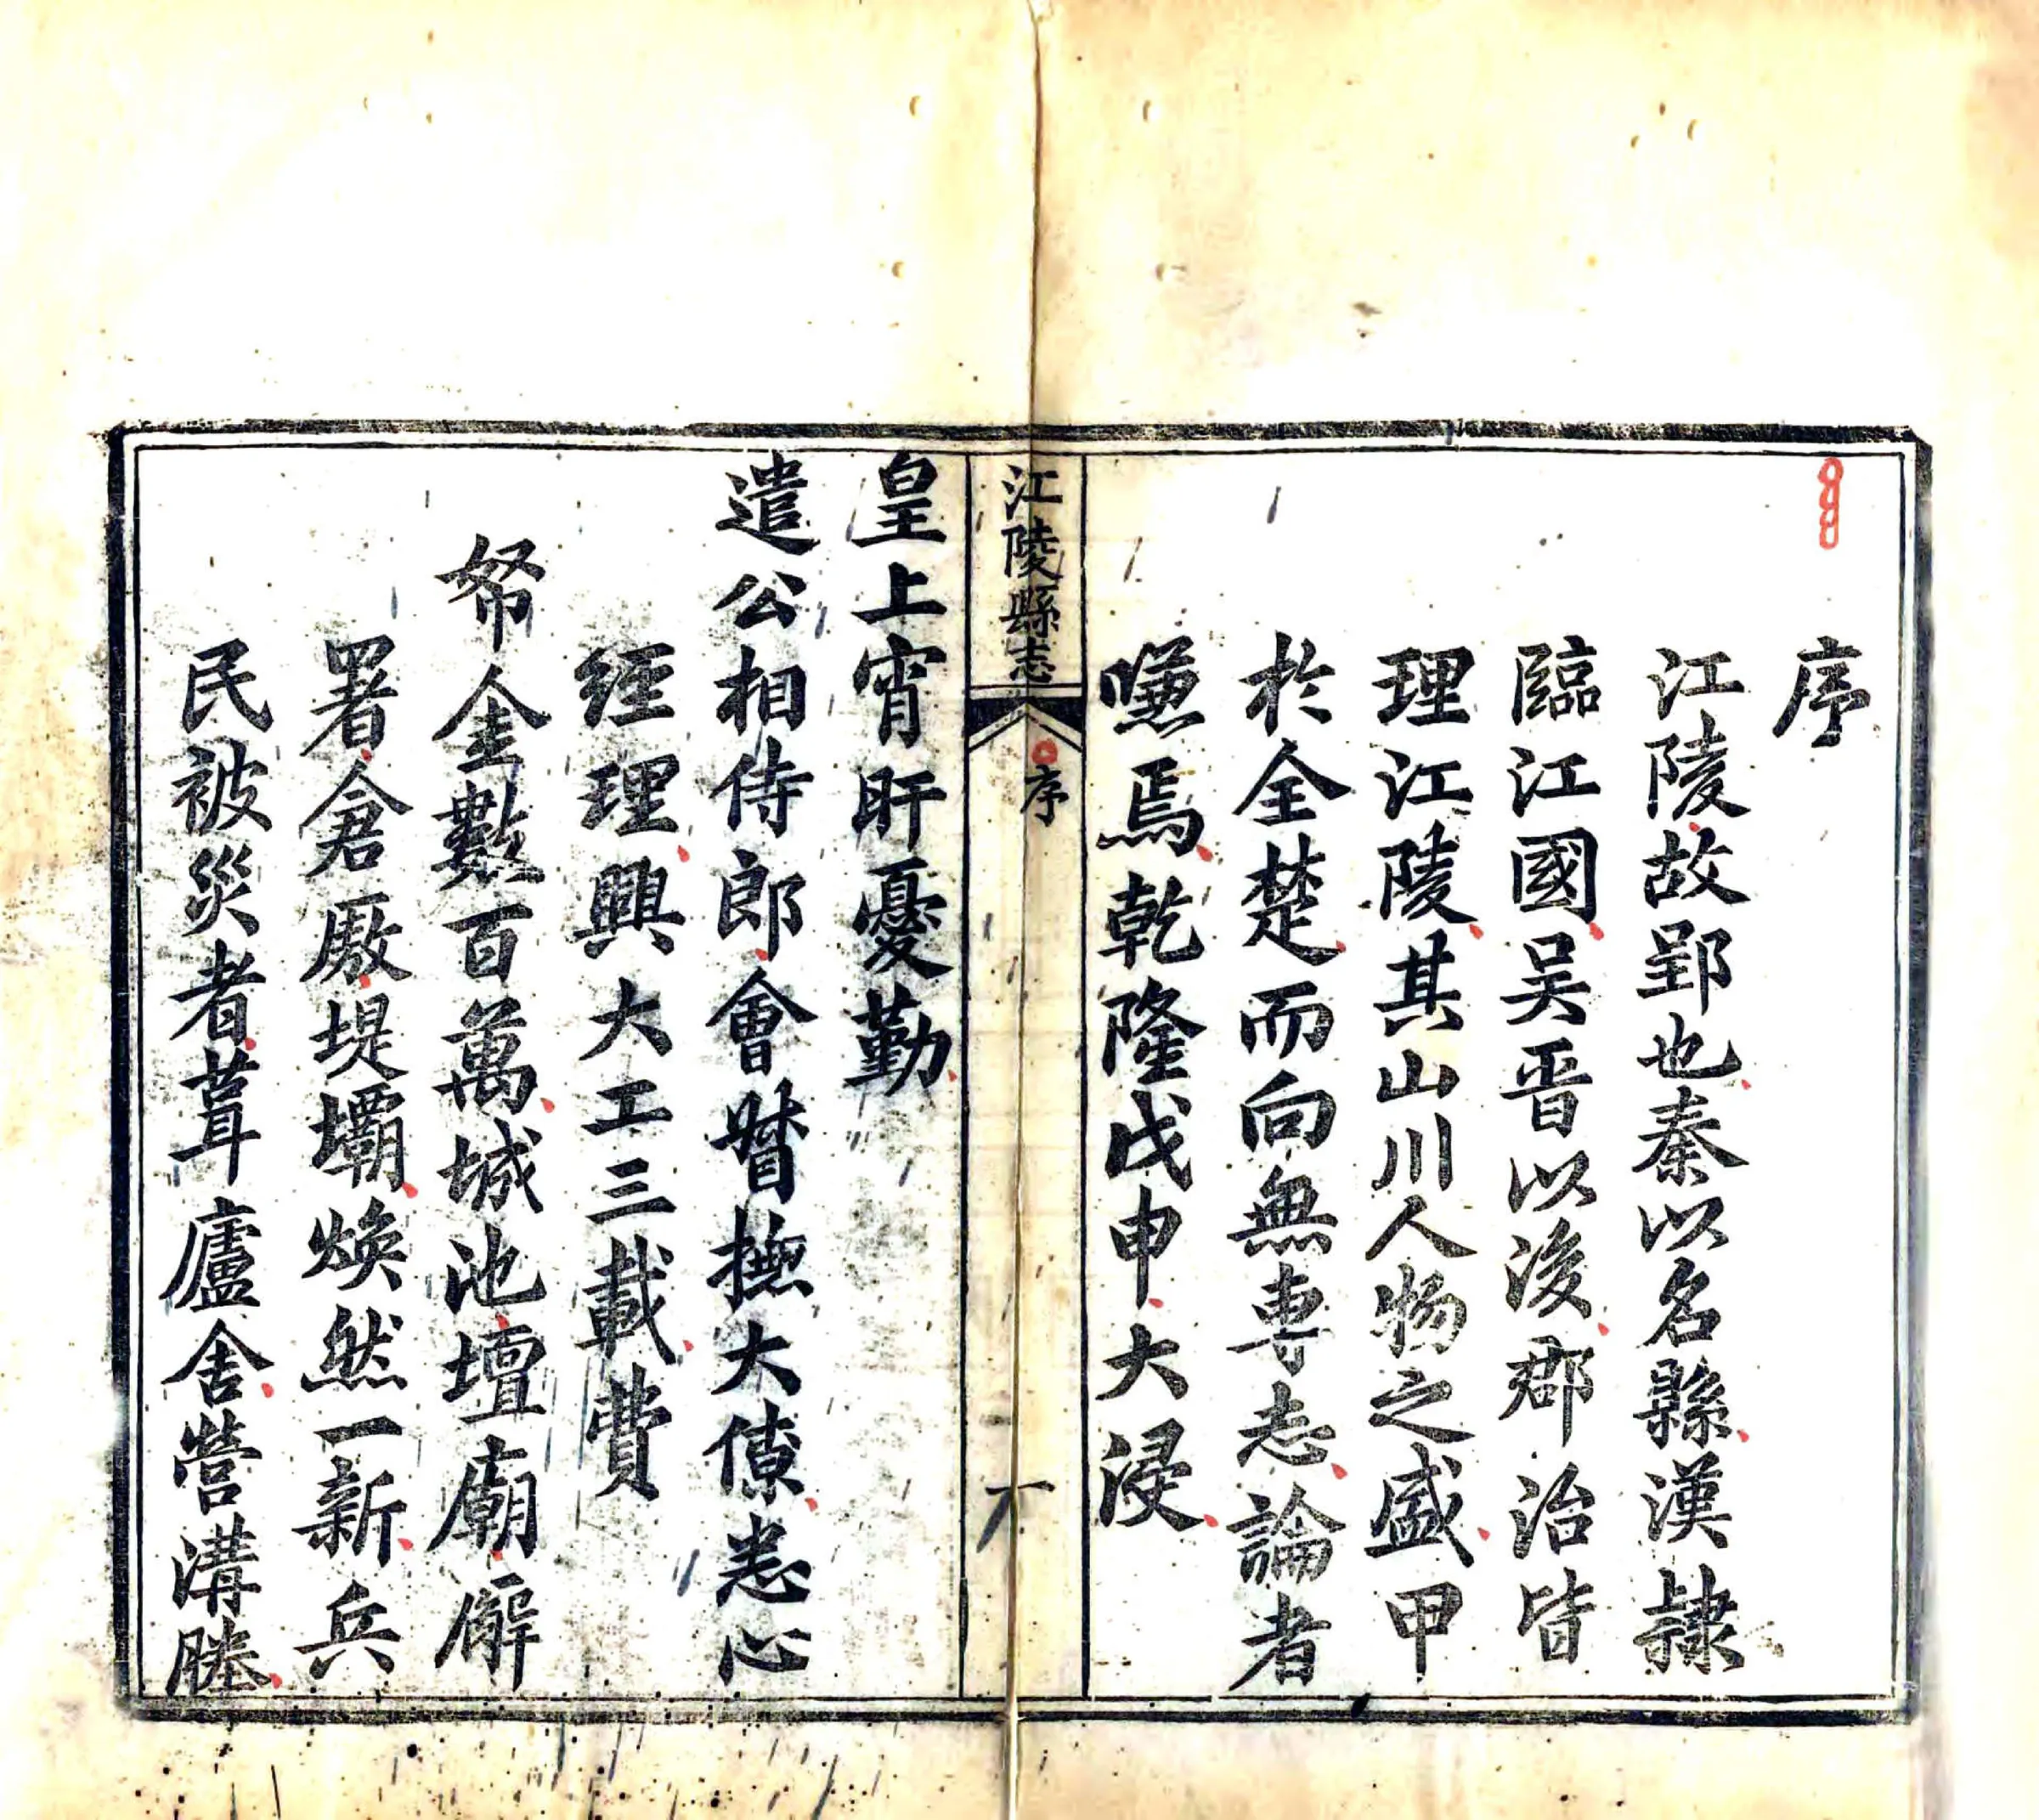 序
江陵故郢也秦以名縣漢隷
臨江國吴晋以後郡治皆
理江陵其山川人物之盛甲
於全楚而向無専志論者
嗛焉乾隆戊申大浸
江陵縣志
序
一
皇上宵旰憂勤
遣公相侍郎會督撫大僚悉心
經理興大工三載費
帑金數百萬城池壇廟廨
署倉厫堤壩煥然一新兵
民被災者葺廬舍營溝塍